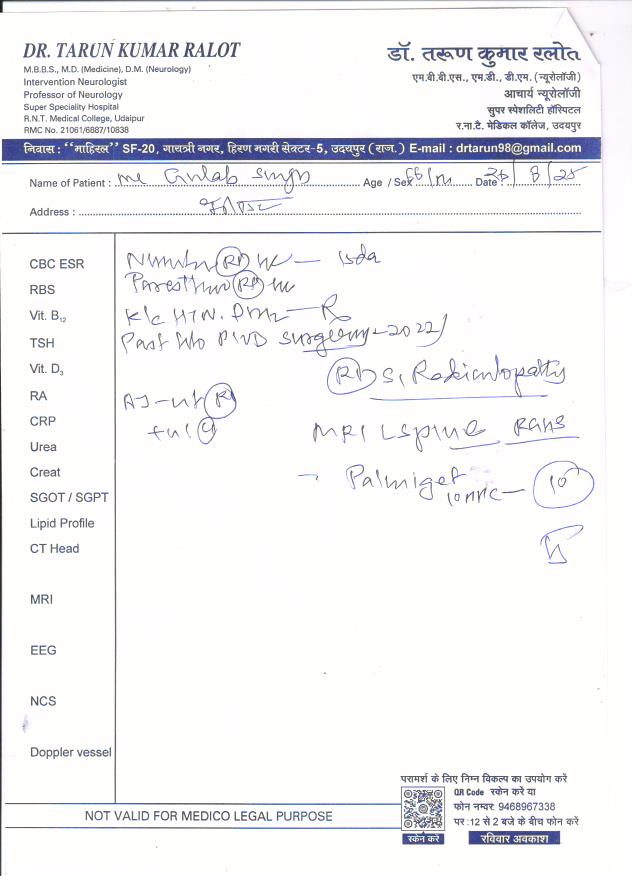 DR. TARUN KUMAR RALOT
M.B.B.S., M.D. (Medicine), D.M. (Neurology)
Intervention Neurologist
Professor of Neurology
Super Speciality Hospital
R.N.T. Medical College, Udaipur
RMC No. 21061/6887/10838
डॉ. तरूण कुमार रलोत
एम.बी.बी.एस., एम.डी., डी.एम. (न्यूरोलॉजी)
आचार्य न्यूरोलॉजी
सुपर स्पेशलिटी हॉस्पिटल
र.ना.टै. मेडिकल कॉलेज, उदयपुर
निवास : "माहिरल" SF-20, गायत्री नगर, हिरण मगरी सेक्टर-5, उदयपुर (राज.) E-mail : drtarun98@gmail.com
Name of Patient : Mr Gulab Singh Age / Sex M Date : 30/8/25
Address :
CBC ESR
RBS
Vit. B12
TSH
Vit. D3
RA
CRP
Urea
Creat
SGOT / SGPT
Lipid Profile
CT Head
MRI
EEG
NCS
Doppler vessel
(R)
(R)
K/c HTN. DM
Past H/o PIVD Surgery - 2022
(R) S1 Radiculopathy
(R)
MRI L spine RGHS
10
NOT VALID FOR MEDICO LEGAL PURPOSE
स्कैन करें
परामर्श के लिए निम्न विकल्प का उपयोग करें
QR Code स्केन करें या
फोन नम्बर: 9468967338
पर :12 से 2 बजे के बीच फोन करें
रविवार अवकाश